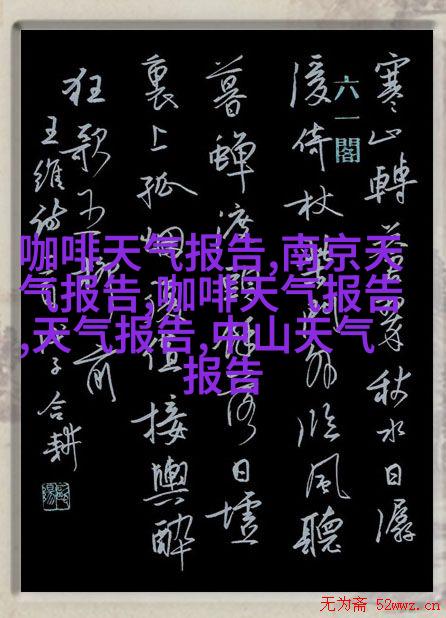 寒山轉蒼翠秋水日潺
六一閣
湲倚杖柴门外临風聽
暮蟬渡頭餘落日墟
裏上孤烟復值接輿醉
狂歌五柳前
王維诗
合耕
咖啡天气报告,南京天
气报告,咖啡天气报告
,天气报告,中山天气
报告
无为斋 52wwz.cn